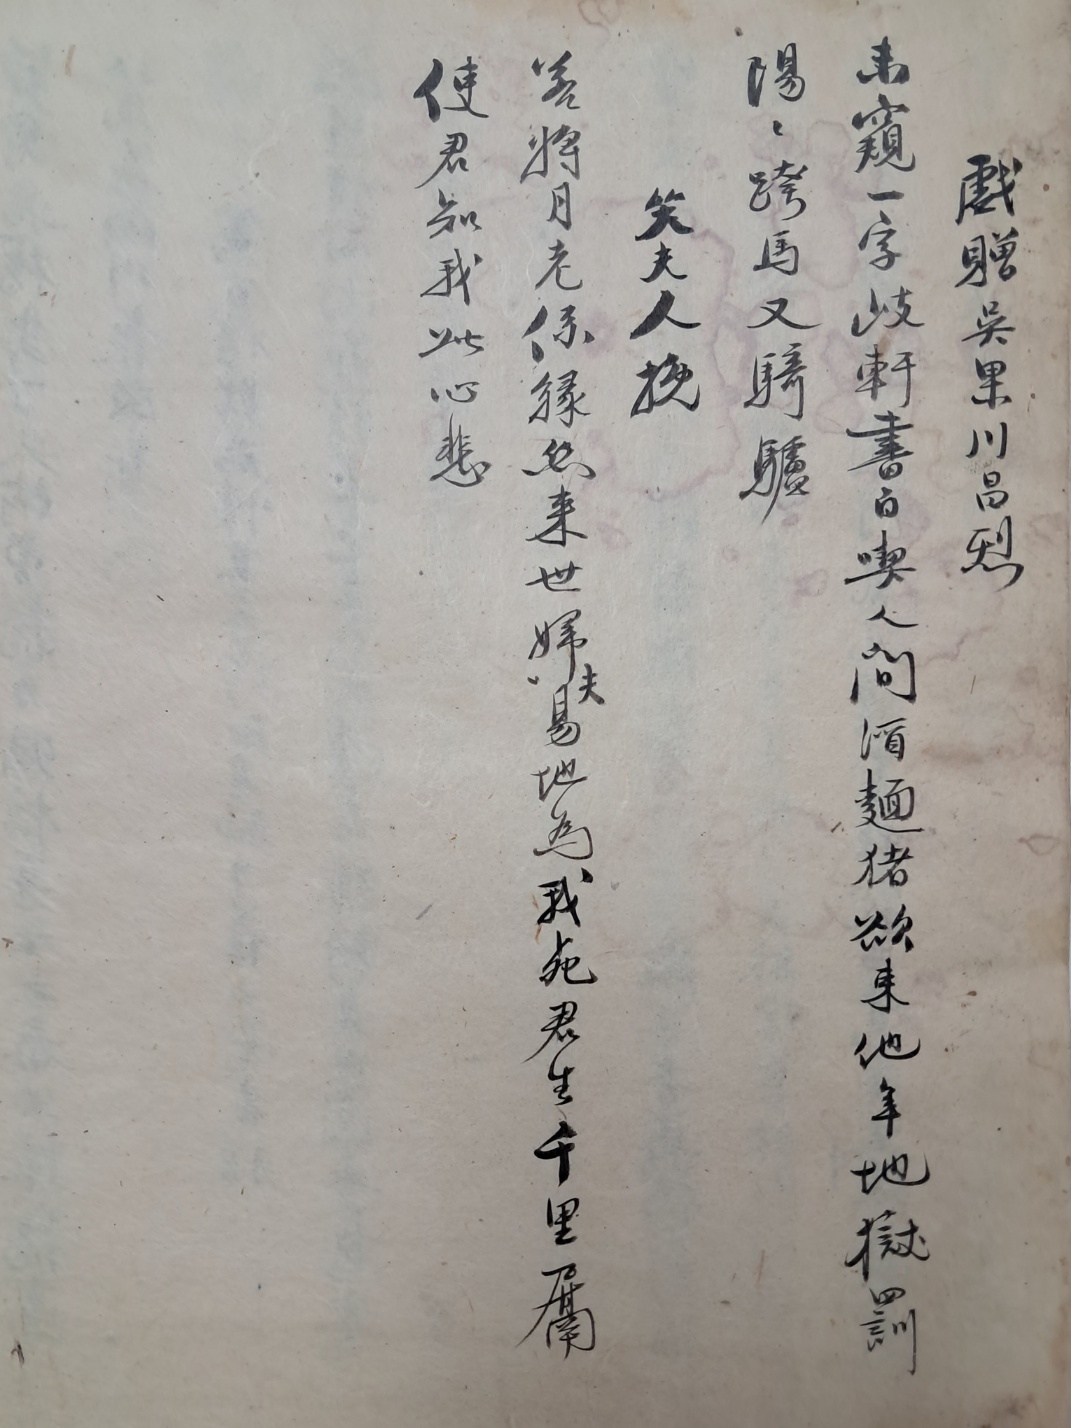 戲贈吳果川昌烈
未窺一字岐軒書白喫人間酒麵猪欲來他年地獄罰
陽〻跨馬又騎驢
哭夫人挽
若將月老係緣絲來世婦夫易地為我死君生千里屬
使君知我此心悲